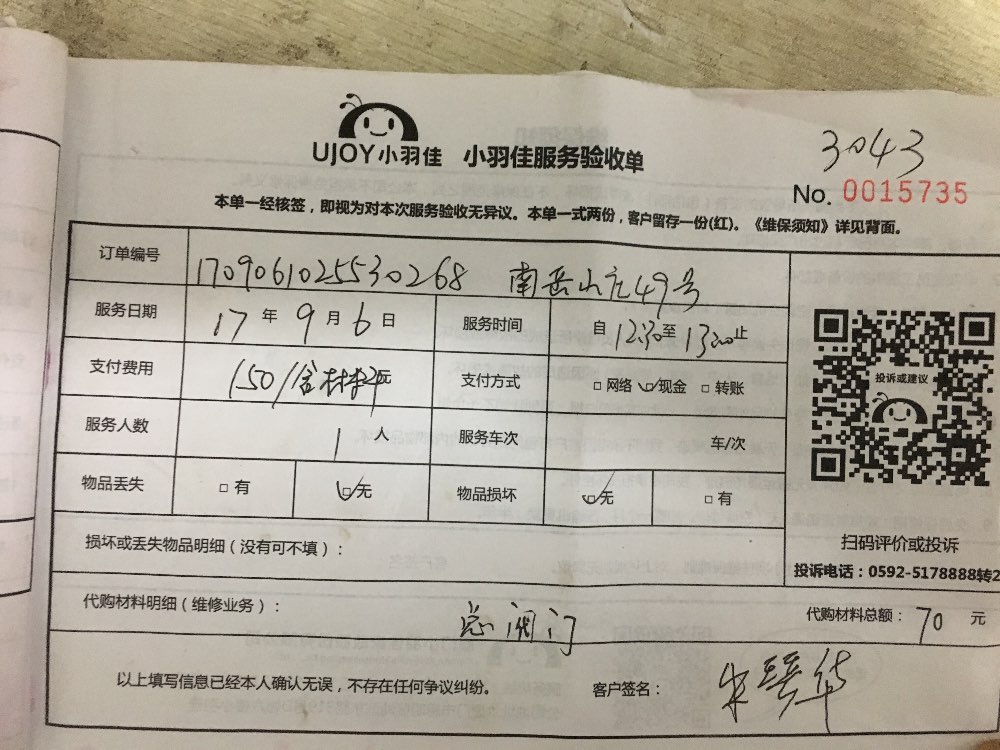 UJOY小羽佳 小羽佳服务验收单
3043
No. 0015735
本单一经核签，即视为对本次服务验收无异议。本单一式两份，客户留存一份(红)。《维保须知》详见背面。
订单编号 1709061025530268 南岳山庄49号
服务日期 17 年 9 月 6 日 服务时间 自 12:30 至 13:00 止
支付费用 150/含材料 元 支付方式 □ 网络 ☑ 现金 □ 转账
服务人数 1 人 服务车次 车/次
物品丢失 □ 有 ☑ 无 物品损坏 ☑ 无 □ 有
投诉或建议
扫码评价或投诉
投诉电话：0592-5178888转2
损坏或丢失物品明细（没有可不填）：
代购材料明细（维修业务）： 总阀门 代购材料总额： 70 元
以上填写信息已经本人确认无误，不存在任何争议纠纷。 客户签名：